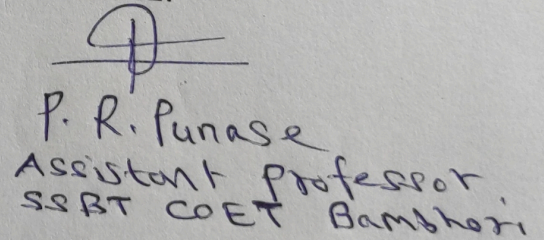 P. R. Punase
Assistant professor
SSBT COET Bambhori